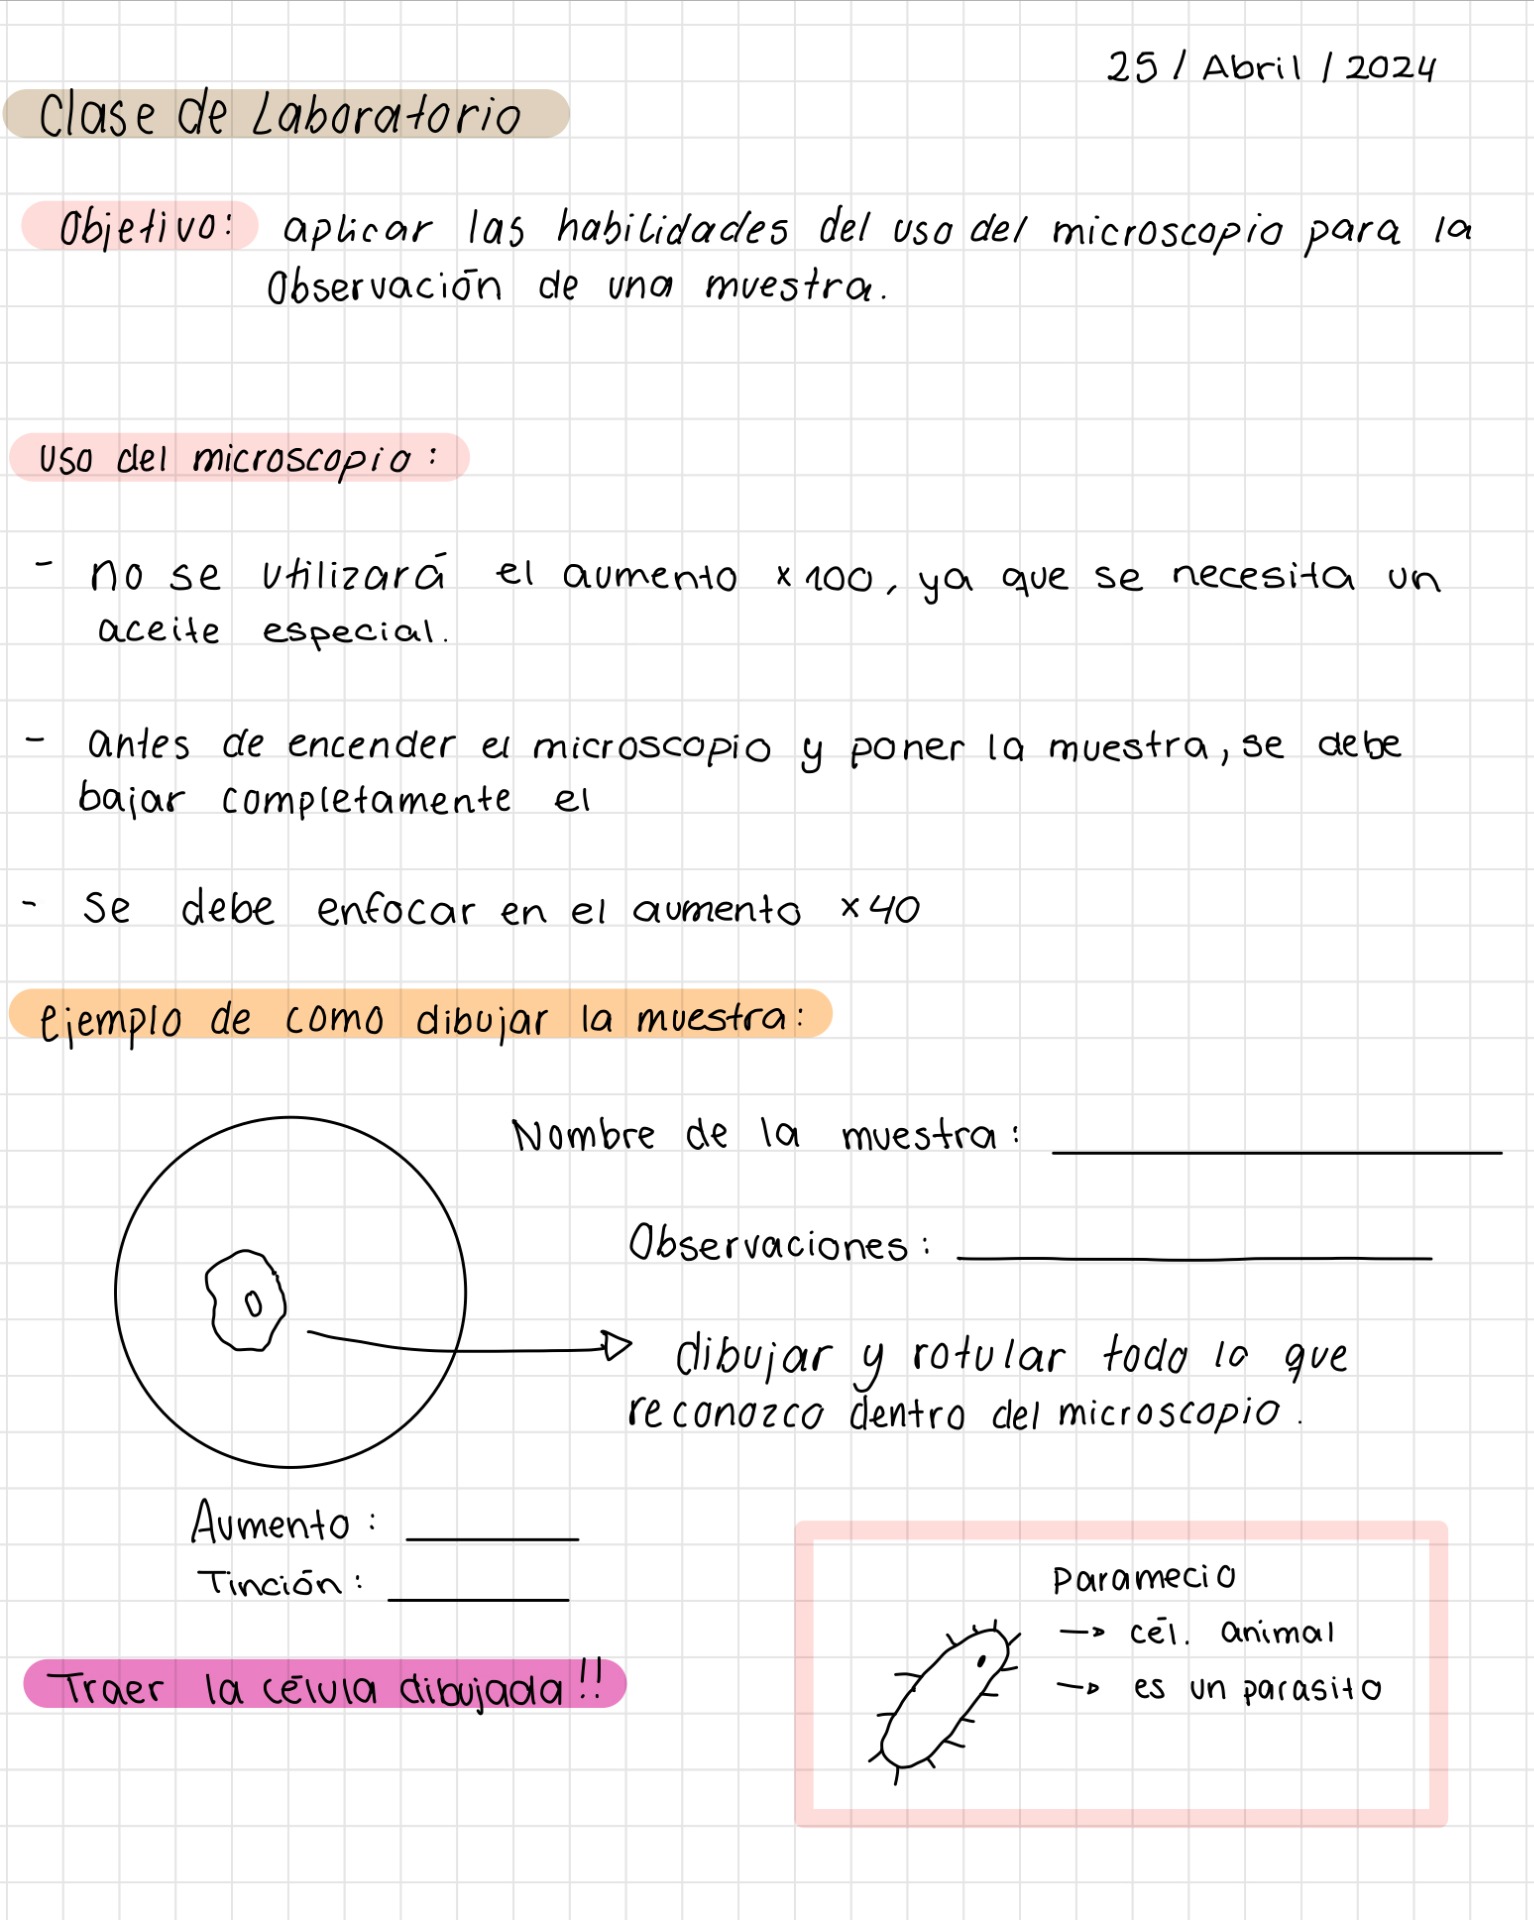 25 / Abril / 2024
Clase de Laboratorio
Objetivo: aplicar las habilidades del uso del microscopio para la
Observación de una muestra.
uso del microscopio:
- no se utilizará el aumento x100, ya que se necesita un
aceite especial.
- antes de encender el microscopio y poner la muestra, se debe
bajar completamente el
- se debe enfocar en el aumento x40
ejemplo de como dibujar la muestra:
Nombre de la muestra: 
Observaciones: 
dibujar y rotular todo lo que
reconozco dentro del microscopio.
Aumento: 
Tinción: 
Paramecio
→ cél. animal
→ es un parasito
Traer la célula dibujada!!